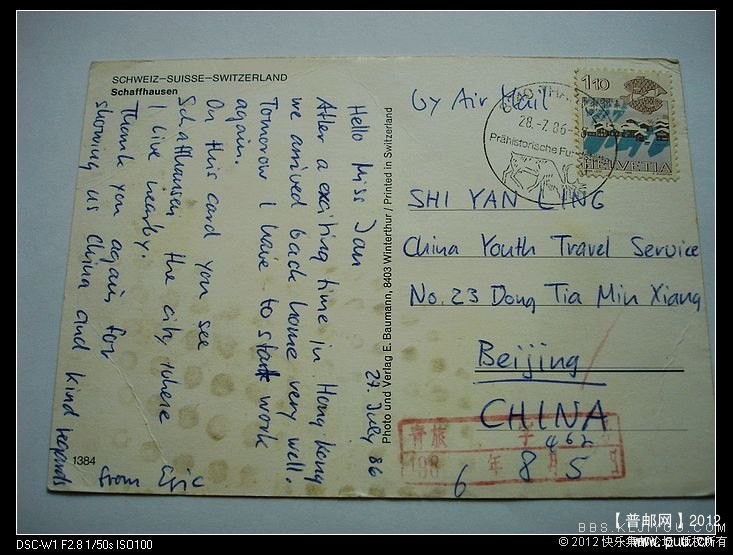 SCHWEIZ–SUISSE–SWITZERLAND
Schaffhausen
27. July 86
Hello Miss Jan
After a exciting time in Hong Kong
we arrived back home very well.
Tomorrow I have to start work
again.
On this card you see
Schaffhausen, the city, where
I live nearby.
Thank you again for
showing us China and kind regards
from Eric
1384
Photo und Verlag E. Baumann, 8403 Winterthur / Printed in Switzerland
by Air Mail
28.-7.86
Prähistorische Fu
110
HELVETIA
SHI YAN LING
China Youth Travel Service
No. 23 Dong Tia Min Xiang
Beijing
CHINA
青旅 字 462
198 6 年 8 月 5 日
【普邮网】2012
BBS.KEJIYOU.COM
DSC-W1 F2.8 1/50s ISO100